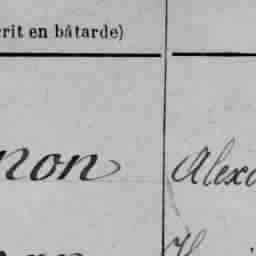 rit en bâtarde)
non Alexa